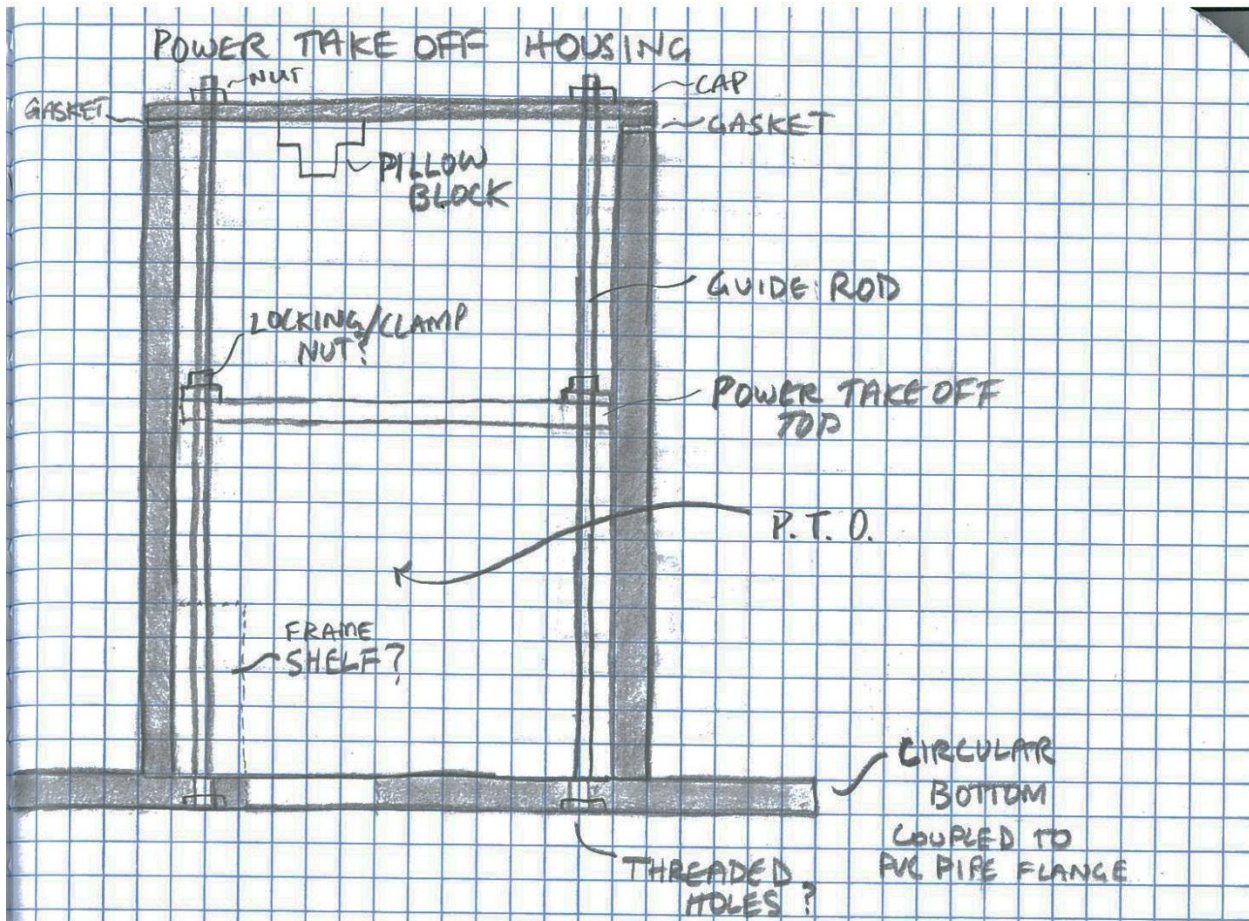 POWER TAKE OFF HOUSING
NUT
CAP
GASKET
GASKET
PILLOW
BLOCK
GUIDE ROD
LOCKING/CLAMP
NUT?
POWER TAKE OFF
TOP
P.T.O.
FRAME
SHELF?
CIRCULAR
BOTTOM
COUPLED TO
PVC PIPE FLANGE
THREADED
HOLES?